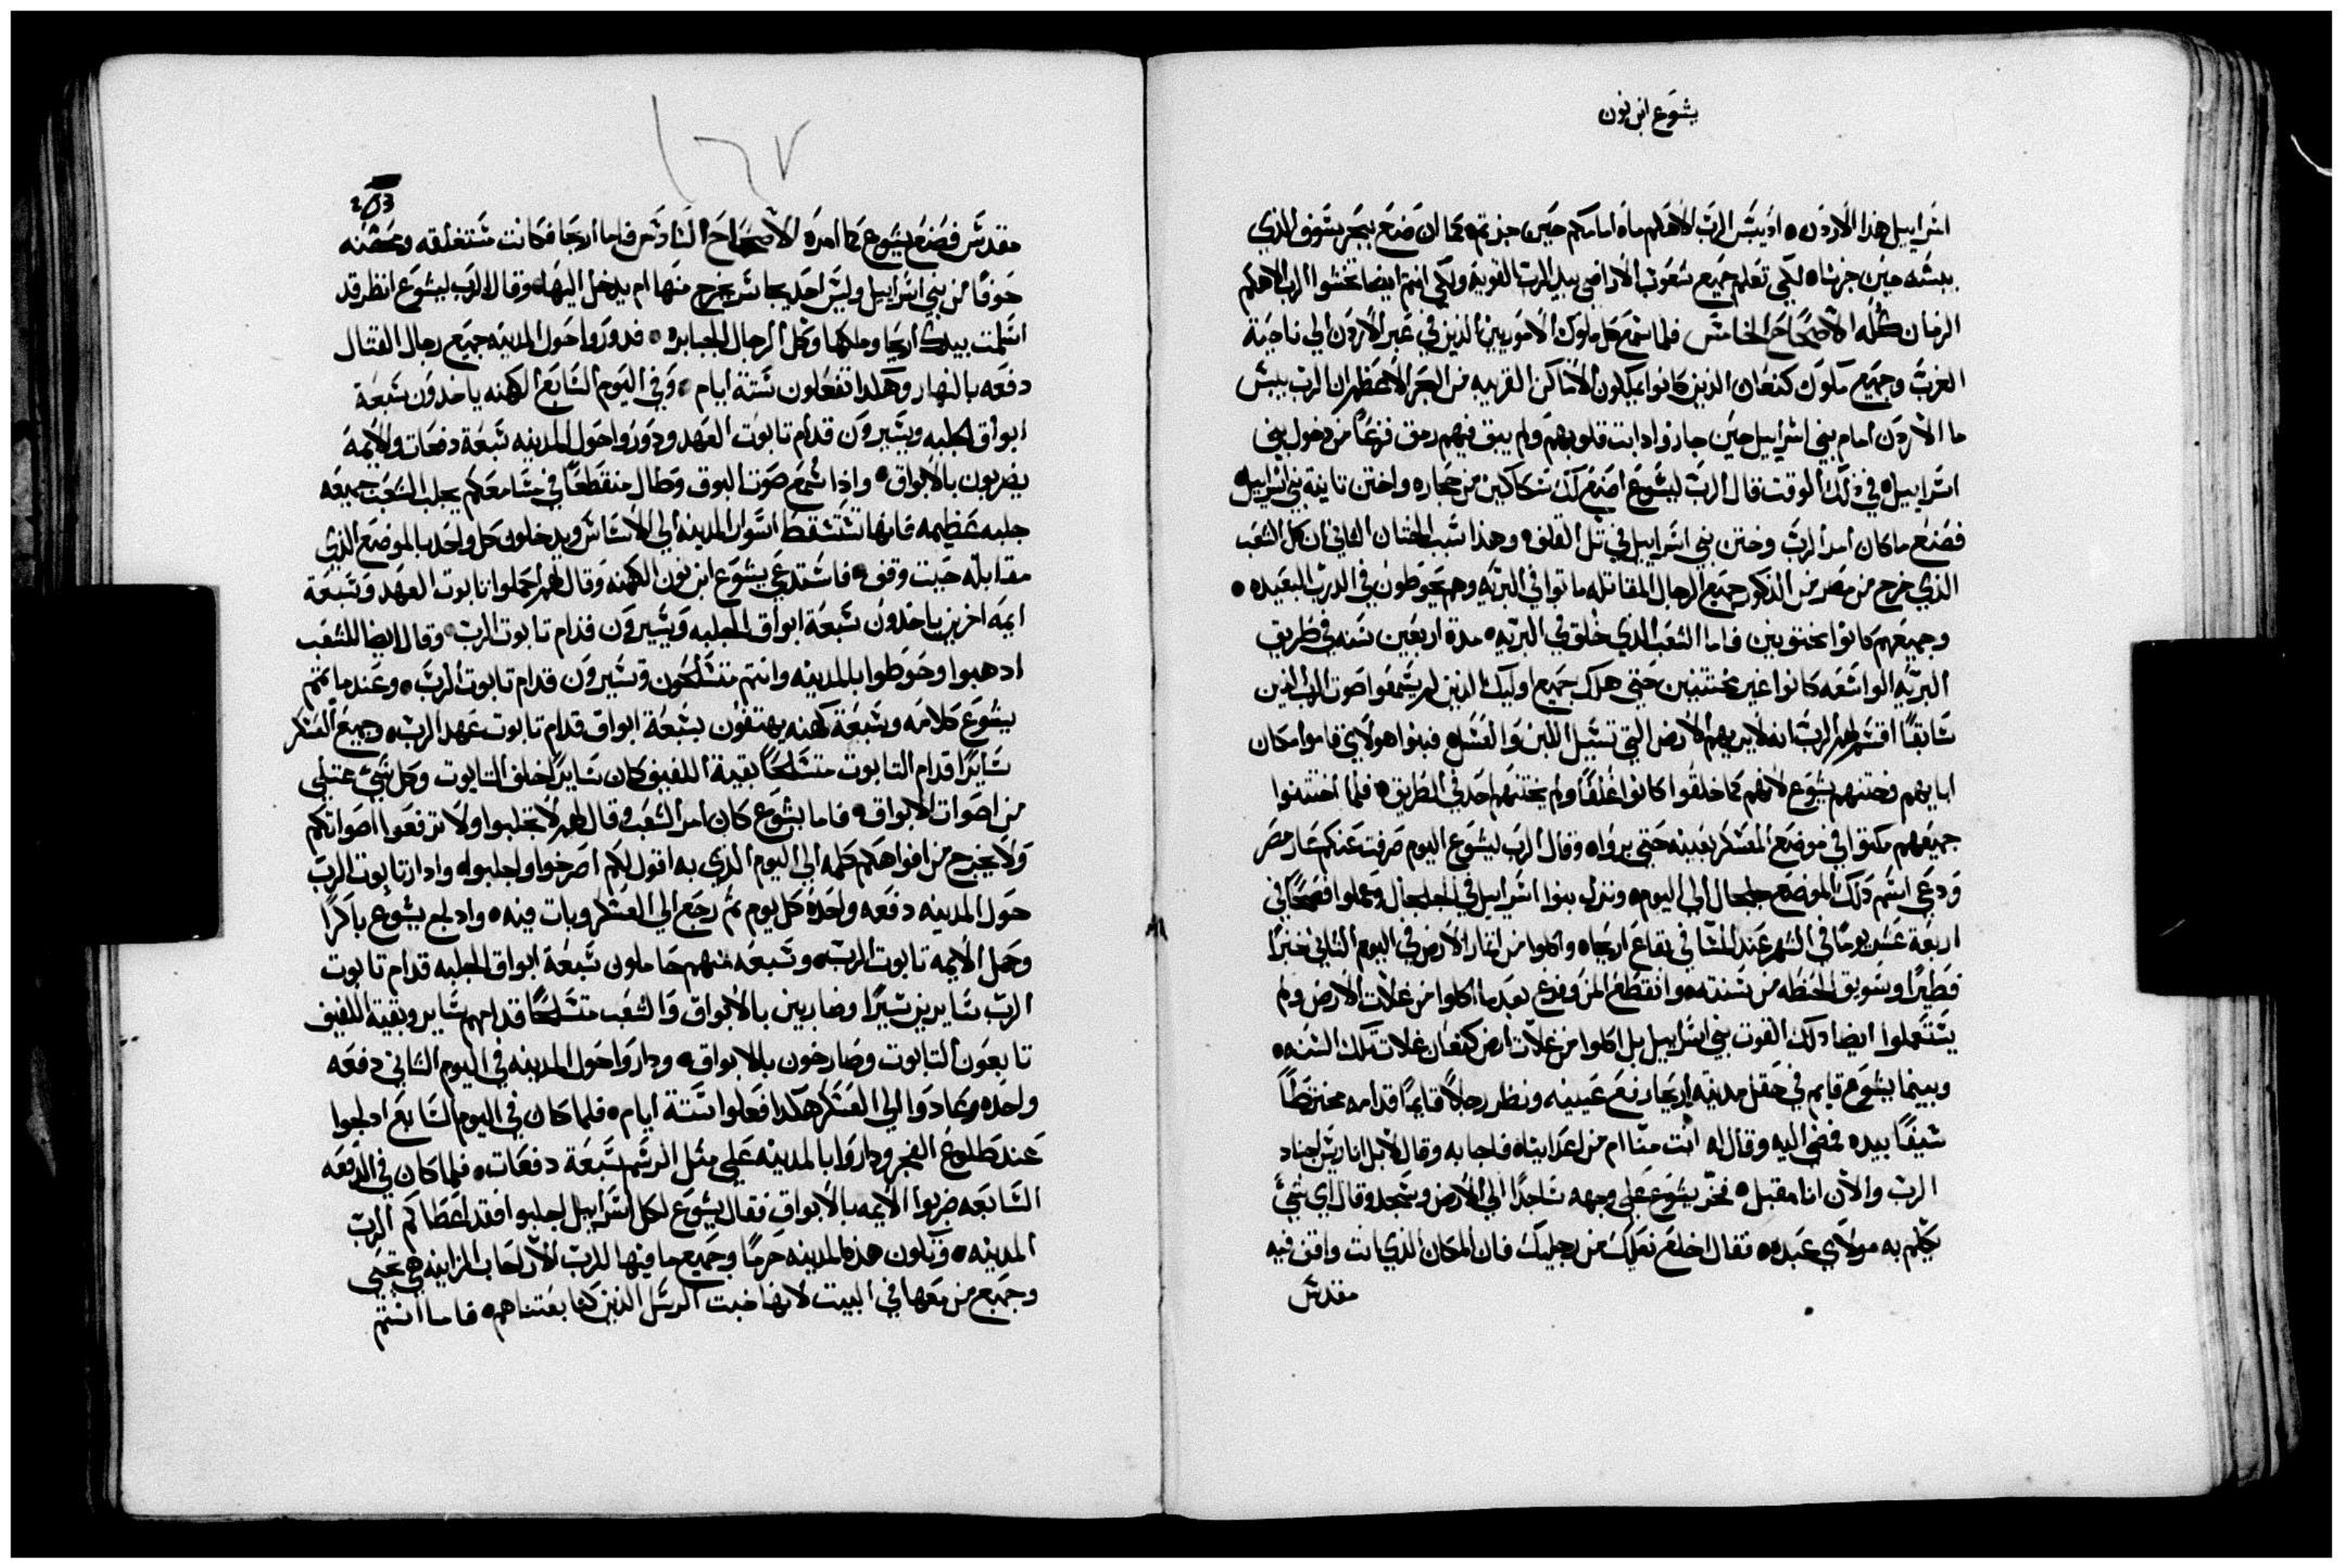 يشوع ابن نون
اسراييل هذا الاردن ٥ اذ يبس الرب الاهكم ماه امامكم حين جزتم ٥ كما ان صنع ببحر سوف الذي
يبسه حين جزناه لكي تعلم جميع شعوب الاراضي بيد الرب القوية ولكي انتم ايضا تخشوا الرب الاهكم
الزمان كله الاصحاح الخامس فلما سمع كل ملوك الاموريين الذين في عبر الاردن الي ناحية
الغرب وجميع ملوك كنعان الذين كانوا يملكون الاماكن القريبه من البحر الاعظم ان الرب يبس
ما الاردن امام بني اسراييل حين جازوا دابت قلوبهم ولم يبق فيهم رمق فزعا من دخول بني
اسراييل ٥ في ذلك الوقت قال الرب ليشوع اصنع لك سكاكين من حجاره واختن تانية بني اسراييل
فصنع ما كان امر الرب وختن بني اسراييل في تل القلف ٥ وهذا سبب الختان الثاني ان كل الشعب
الذي خرج من مصر من الذكور جميع الرجال المقاتله ماتوا في البريه وهم يحوطون في الدرب البعيده ٥
وجميعهم كانوا مختونين فاما الشعب الذي خلق في البريه ٥ مدة اربعين سنه في طريق
البريه الواسعه كانوا غير مختتنين حتي هلك جميع اوليك الذين لم يسمعوا صوت الرب الذين
سابقا اقسم لهم الرب انه لا يريهم الارض التي تسيل اللبن والعسل ٥ فبنوا هولاي قاموا مكان
ابايهم فختنهم يشوع لانهم كما خلقوا كانوا غلفا ولم يختنهم احد في الطريق ٥ فلما اختتنوا
جميعهم مكتوا في موضع المعسكر بعينه حتي برواه وقال الرب ليشوع اليوم صرفت عنكم عار مصر
ودعي اسم ذلك الموضع جلجال الي اليوم ٥ ونزل بنوا اسراييل في الجلجال وعملوا فصحا في
اربعة عشر يوما في الشهر عند المسا في بقاع اريحا ٥ واكلوا من اثمار الارض في اليوم الثاني خبزا
فطيرا وسويق الحنطه من سنته ٥ وانقطع المن وفرع بعد ما اكلوا من غلات الارض ولم
يستعملوا ايضا ذلك القوت بني اسراييل بل اكلوا من غلات ارض كنعان غلات تلك السنه ٥
وبينما يشوع قايم في حقل مدينه اريحا رفع عينيه ونظر رجلا قايما قدامه مخترطا
سيفا بيده فمضي اليه وقال له انت منا ام من اعداينا ٥ فاجابه وقال لا بل انا ريس اجناد
الرب والان انا مقبل ٥ فخر يشوع علي وجهه ساجدا الي الارض وسجد وقال اي شي
يكلم به مولاي عبده ٥ فقال اخلع نعليك من رجليك فان المكان الذي انت واقف فيه
مقدس
253
١٦٧
مقدس فصنع يشوع كما امره الاصحاح السادس فاما اريحا فكانت مستغلقه ومحصنه
خوفا من بني اسراييل وليس احد يجاسر يخرج منها ام يدخل اليها ٥ وقال الرب ليشوع انظر قد
اسلمت بيدك اريحا وملكها وكل الرجال الجبابره ٥ فدوروا حول المدينه جميع رجال القتال
دفعه بالنهار وهكدا تفعلون ستة ايام ٥ وفي اليوم السابع الكهنه ياخدون سبعة
ابواق الجلبه ويسيرون قدام تابوت العهد ودوروا حول المدينه سبعة دفعات والايمة
يضربون بالابواق ٥ واذا سمع صوت البوق وطال منقطعا في مسامعكم يجلب الشعب جميعه
جلبه عظيمه فانها تستسقط اسوار المدينه الي الاساس ويدخلون كل واحد بالموضع الذي
مقابله حيت وقف ٥ فاستدعي يشوع ابن نون الكهنه وقال لهم احملوا تابوت العهد وسبعة
ايمه اخرين ياخدون سبعة ابواق الجلبه ويسيرون قدام تابوت الرب ٥ وقال ايضا للشعب
ادهبوا وحوطوا بالمدينه وانتم متسلحون وتسيرون قدام تابوت الرب ٥ وعندما تمم
يشوع كلامه وسبعة كهنه يهتفون بسبعة ابواق قدام تابوت عهد الرب ٥ وجميع العسكر
سايرا قدام التابوت متسلحا بقية اللفيف كان سايرا خلف التابوت وكل شي عتيلي
من اصوات الابواق ٥ فاما يشوع كان امر الشعب وقال لهم لا تجلبوا ولا ترفعوا اصواتكم
ولا يخرج من افواهكم كلمه الي اليوم الذي به اقول لكم اصرخوا واجلبوا ٥ وادار تابوت الرب
حول المدينه دفعه واحده كل يوم تم رجع الي العسكر وبات فيه ٥ وادلج يشوع باكرا
وحمل الايمه تابوت الرب ٥ وسبعه منهم حاملون سبعة ابواق الجلبه قدام تابوت
الرب سايرين سيرا وضاربين بالابواق والشعب متسلحا قدامهم ساير وبقية اللفيف
تابعون التابوت وصارخون بالابواق ٥ وداروا حول المدينه في اليوم الثاني دفعه
واحده وعادوا الي العسكر هكدا فعلوا ستة ايام ٥ فلما كان في اليوم السابع ادلجوا
عند طلوع الفجر وداروا بالمدينه علي مثل الرسم سبعة دفعات ٥ فلما كان في الدفعه
السابعه ضربوا الايمه بالابواق فقال يشوع لكل اسراييل اجلبوا فقد اعطاكم الرب
المدينه ٥ وتكون هذه المدينه حرما وجميع ما فيها للرب الا راحاب الزانيه هي تحيي
وجميع من معها في البيت لانها خبت الرسل الذين كنا بعتناهم ٥ فاما انتم